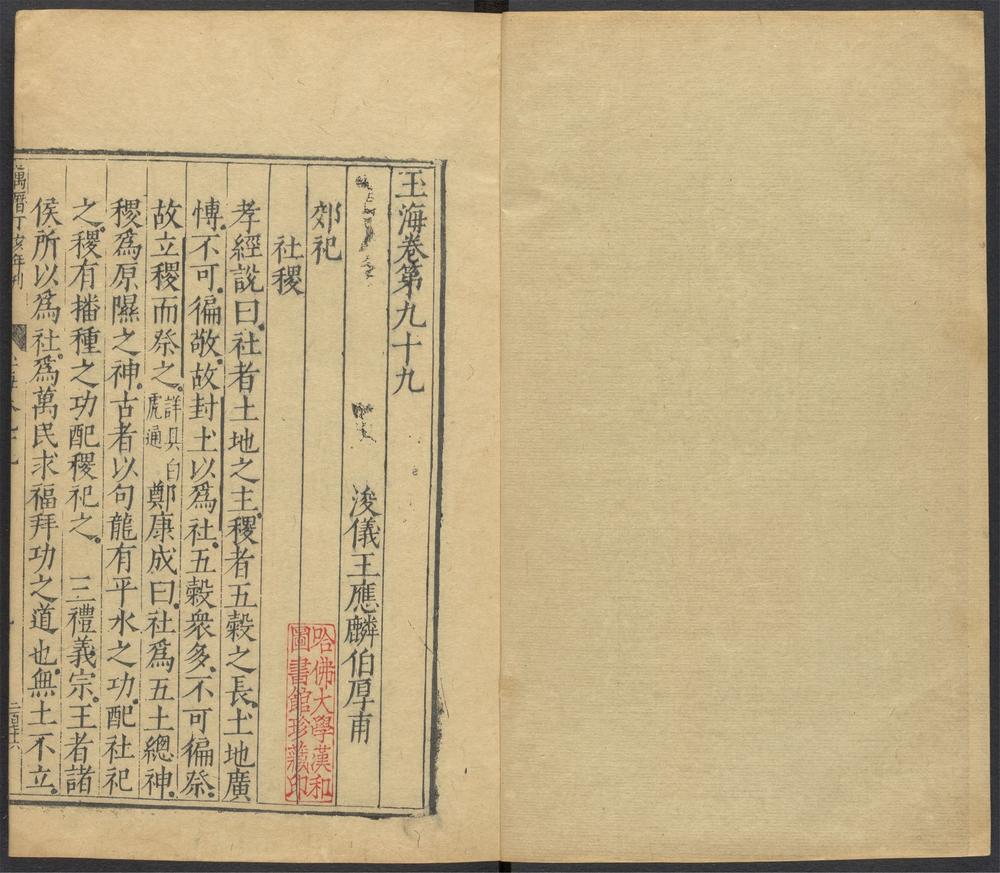 玉海卷第九十九
浚儀王應麟伯厚甫
郊祀
社稷
孝經說曰社者土地之主稷者五穀之長土地廣
愽不可徧敬故封土以爲社五穀衆多不可徧祭
故立稷而祭之詳具白虎通鄭康成曰社爲五土總神
稷爲原隰之神古者以句龍有平水之功配社祀
之稷有播種之功配稷祀之三禮義宗王者諸
侯所以爲社爲萬民求福拜功之道也無土不立
萬曆丁亥年刊
哈佛大學漢和
圖書館珍藏印